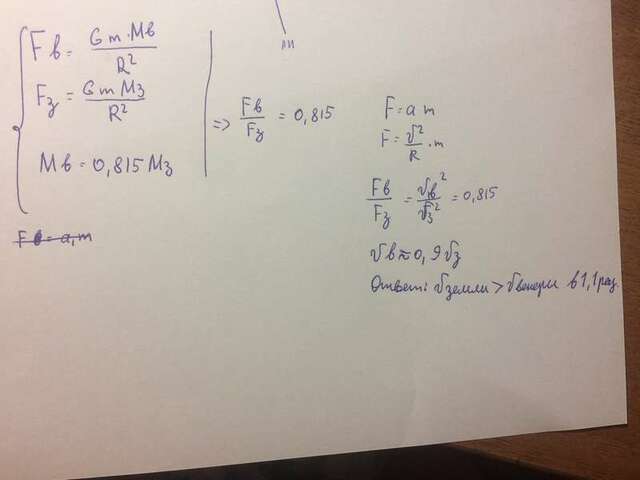 Fв = G m·Mв / R²
Fз = G m Mз / R²
Mв = 0,815 Mз
Fв = a, m
=> Fв / Fз = 0,815
m
F = a m
F = v² / R · m
Fв / Fз = vв² / vз² = 0,815
vв ≈ 0,9 vз
Ответ: v земли > v венеры в 1,1 раз